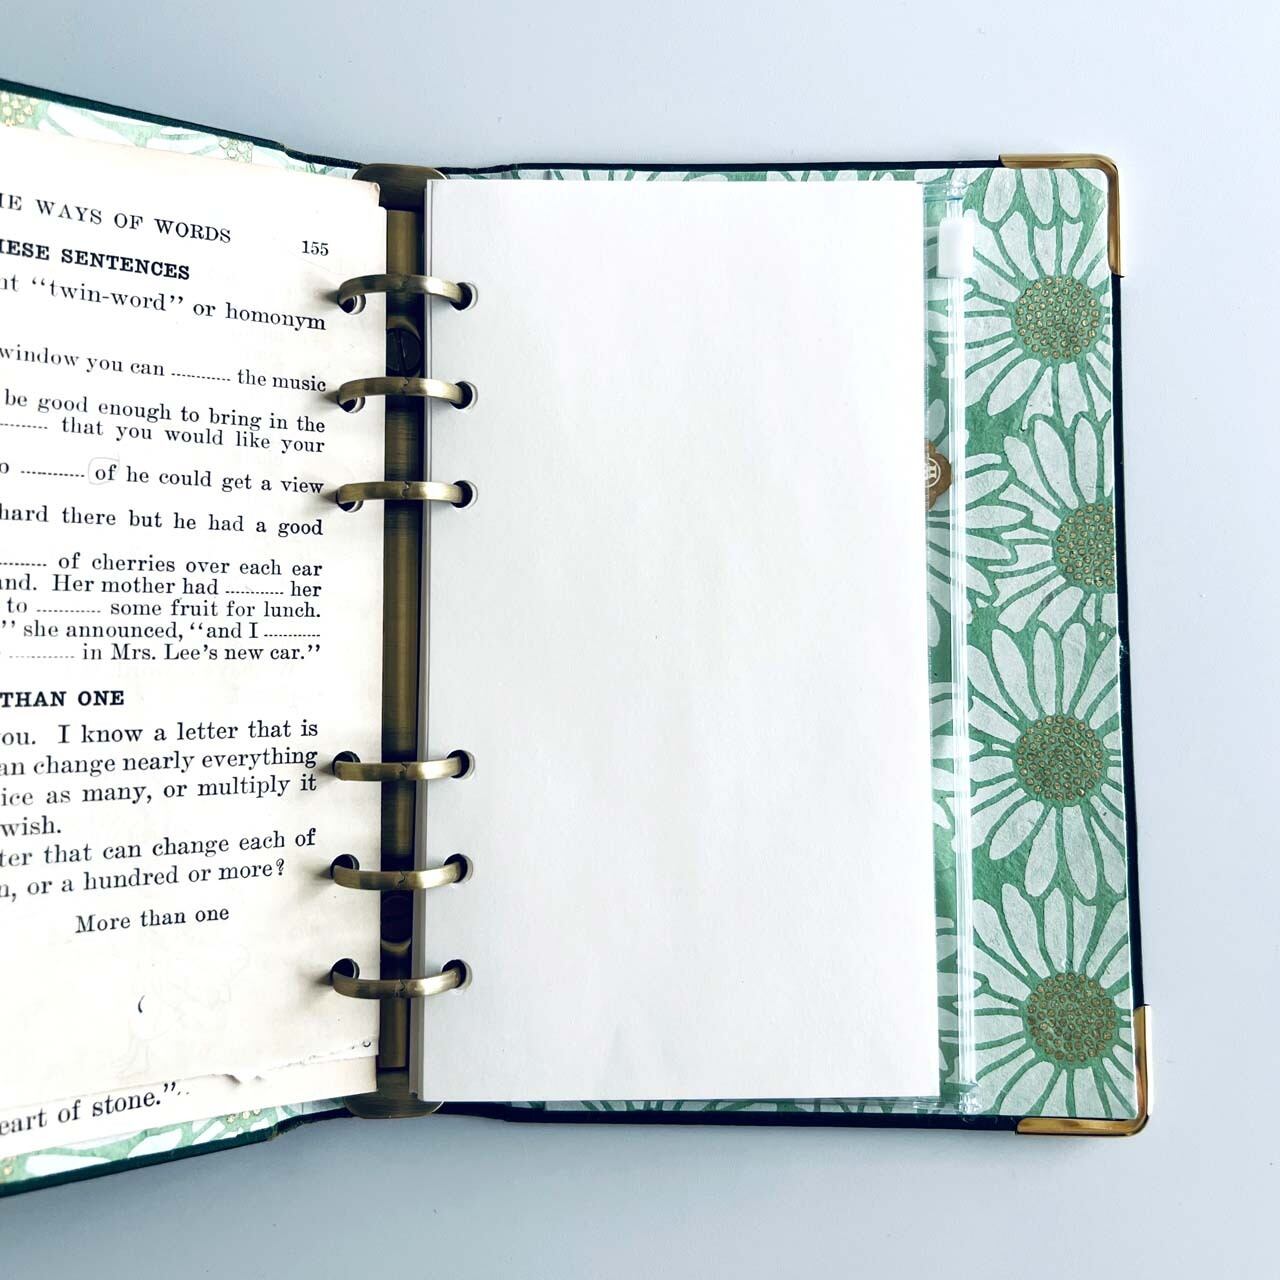 WAYS OF WORDS 155
THESE SENTENCES
"twin-word" or homonym
window you can ............ the music
be good enough to bring in the
............ that you would like your
............ of he could get a view
hard there but he had a good
............ of cherries over each ear
Her mother had ............ her
to ............ some fruit for lunch.
" she announced, "and I ............
............ in Mrs. Lee's new car."
THAN ONE
I know a letter that is
change nearly everything
as many, or multiply it
wish.
that can change each of
or a hundred or more?
More than one
of stone."